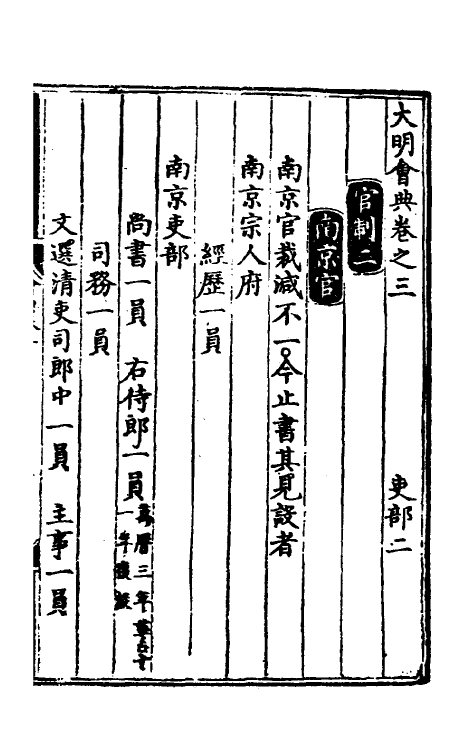 大明會典卷之三 吏部二
官制二
南京官
南京官裁減不一。今止書其見設者
南京宗人府
經歷一員
南京吏部
尚書一員 右侍郎一員 萬曆三年革十一年復設
司務一員
文選清吏司郎中一員 主事一員